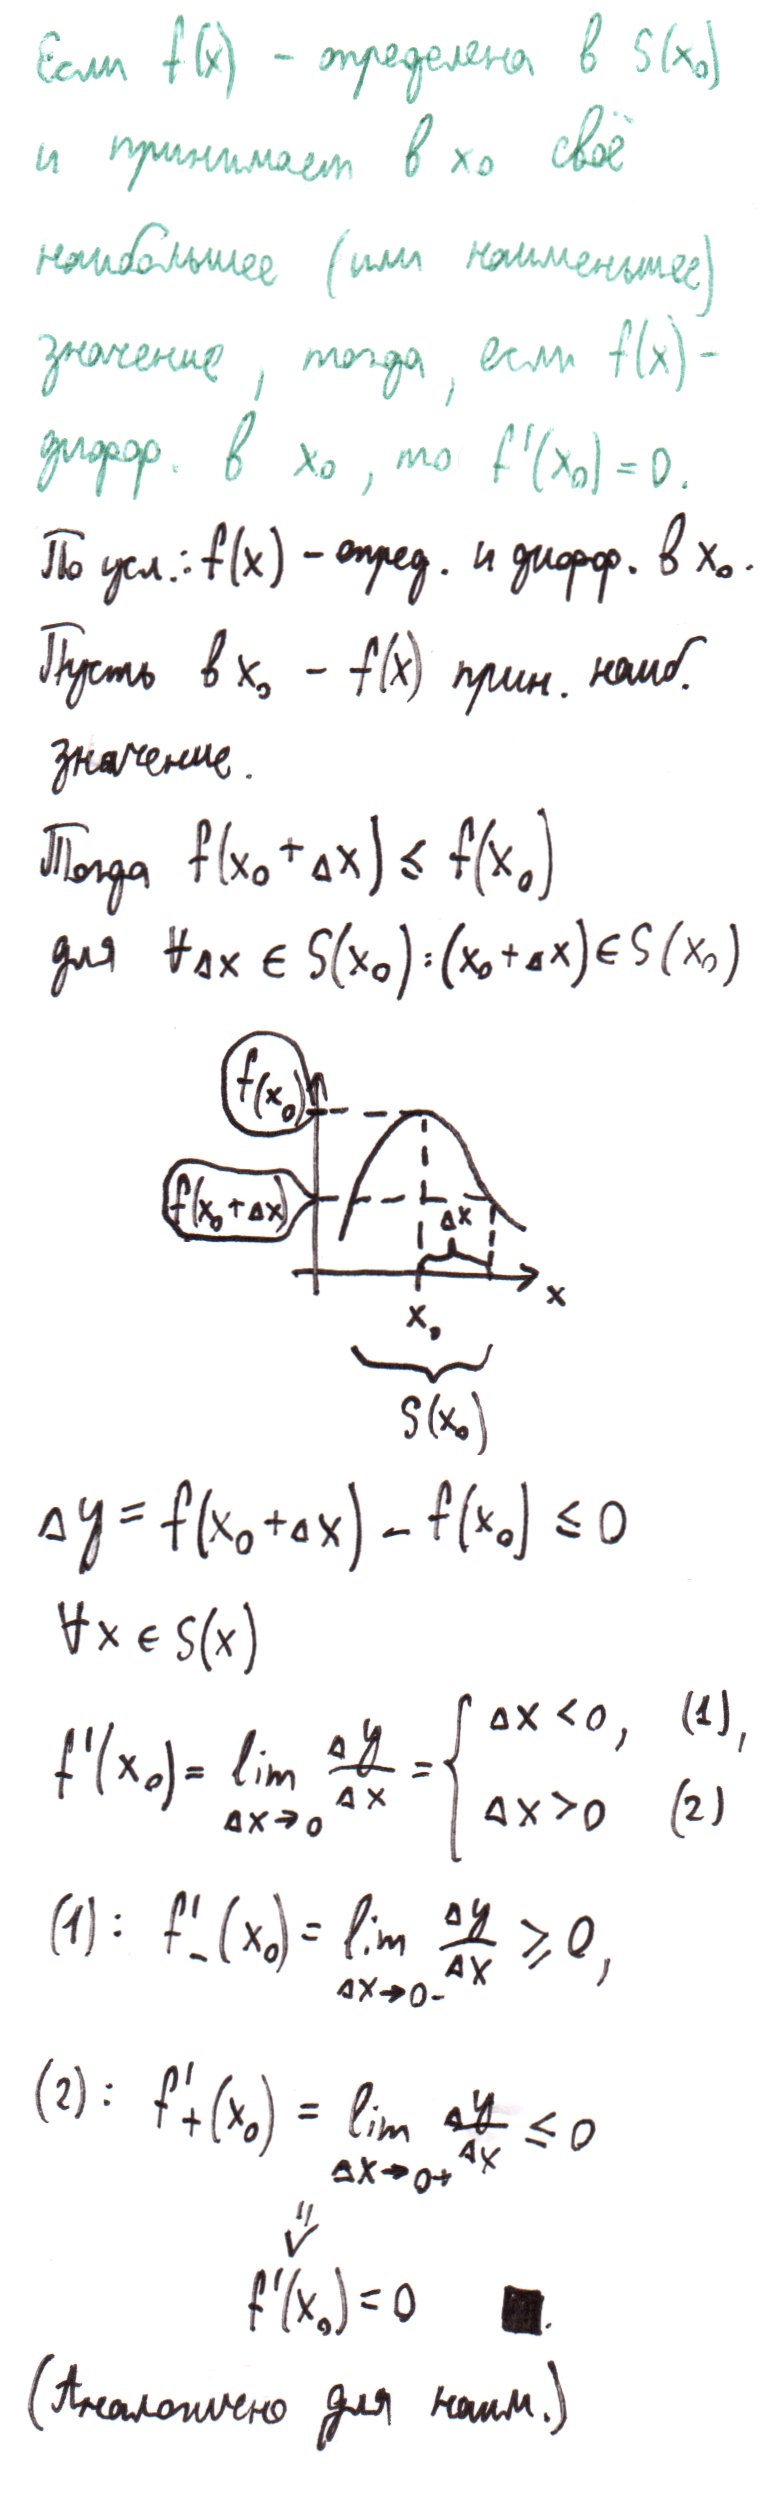 Если f(x) – определена в S(x₀)
и принимает в x₀ своё
наибольшее (или наименьшее)
значение, тогда, если f(x) –
дифф. в x₀, то f'(x₀) = 0.
По усл.: f(x) – опред. и дифф. в x₀.
Пусть в x₀ – f(x) прин. наиб.
значение.
Тогда f(x₀ + Δx) ≤ f(x₀)
для ∀Δx ∈ S(x₀) : (x₀ + Δx) ∈ S(x₀)
f(x₀)
f(x₀ + Δx)
Δx
x
x₀
S(x₀)
Δy = f(x₀ + Δx) – f(x₀) ≤ 0
∀x ∈ S(x)
f'(x₀) = lim Δy/Δx = { Δx < 0, (1),
Δx→0 Δx > 0 (2)
(1): f'₋(x₀) = lim Δy/Δx ≥ 0,
Δx→0-
(2): f'₊(x₀) = lim Δy/Δx ≤ 0
Δx→0+
⇓
f'(x₀) = 0 ■.
(Аналогично для наим.)